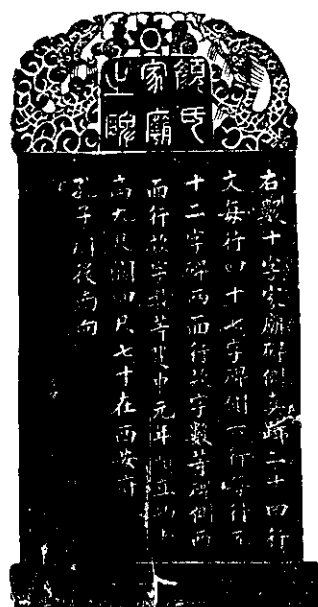 顏氏
家廟
之碑
右數十字家廟碑側真蹟二十四行
文每行四十七字碑側行每行五
十二字碑兩面行款字數等碑側兩
面行款字數等建中元年立
高九尺闊四尺七寸在西安府
孔子廟後南向